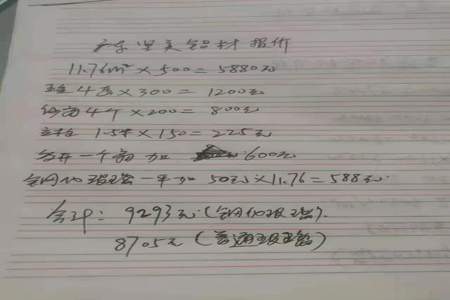 广东坚美铝材报价
11.76m² × 500 = 5880元
4 × 300 = 1200元
纱窗4个 × 200 = 800元
1.5米 × 150 = 225元
分开一个窗加 600元
钢化玻璃一平加 50元 × 11.76 = 588元
合计: 9293元 (钢化玻璃).
8705元 (普通玻璃)